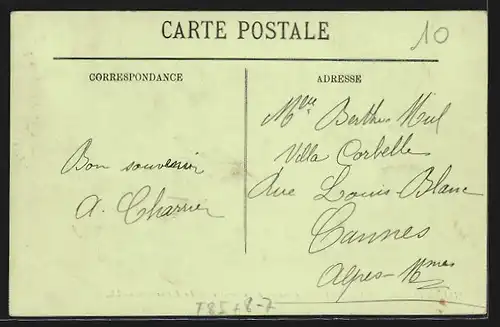 CARTE POSTALE
10
CORRESPONDANCE
ADRESSE
Bon souvenir
A. Charrier
Melle Berthe
Villa Corbelle
Rue Louis-Blanc
Cannes
Alpes-Mmes